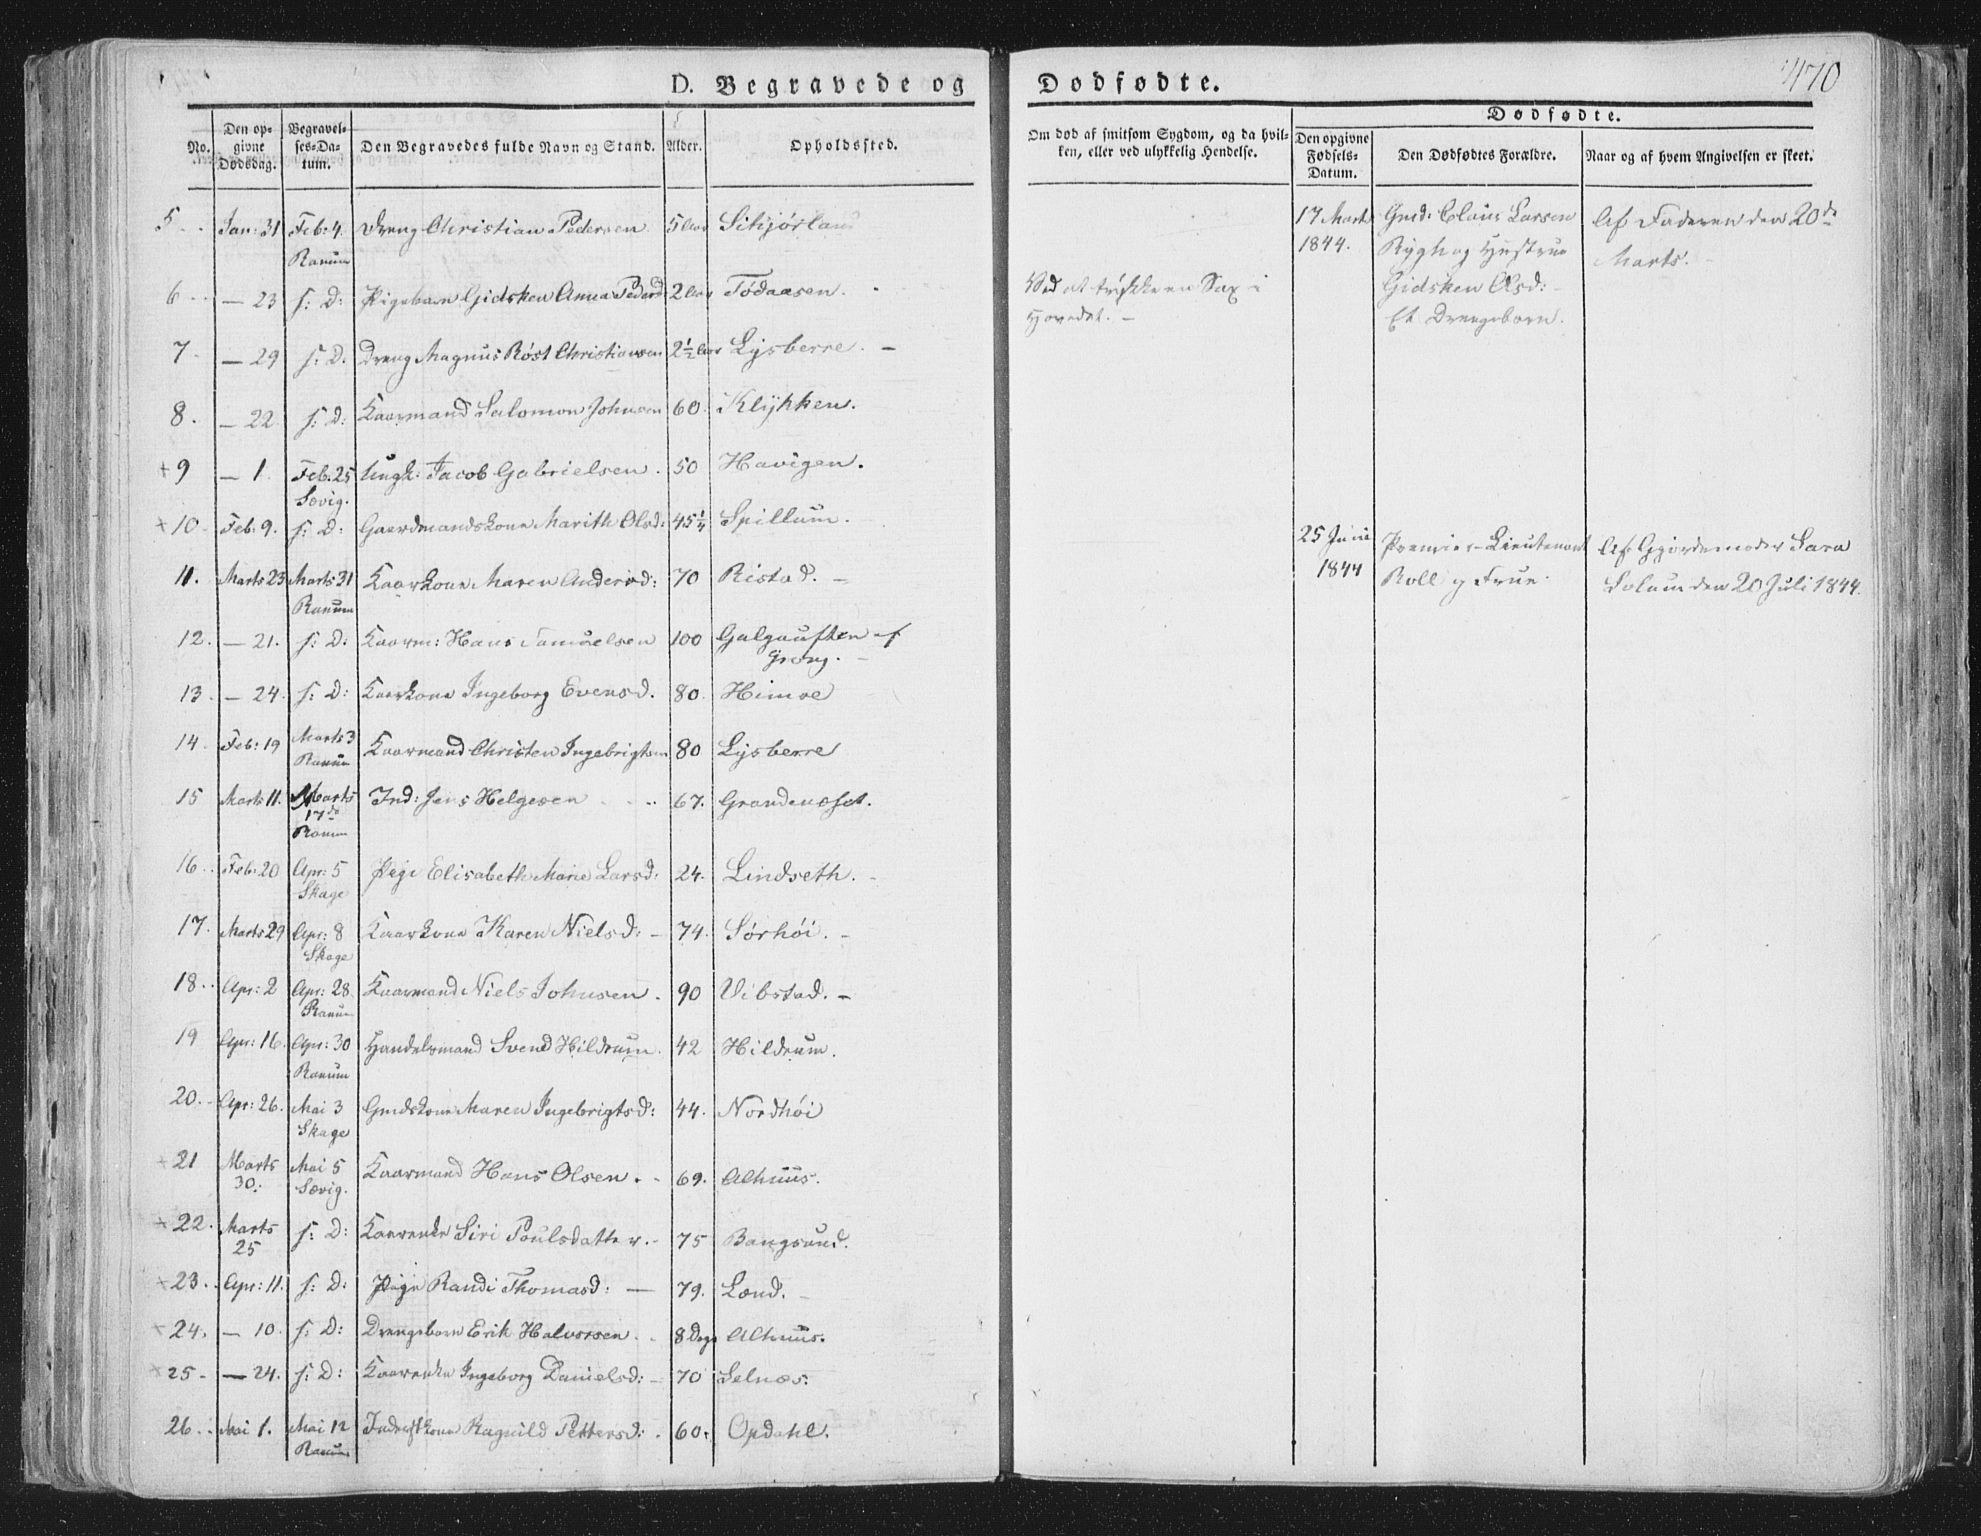 470
D. Begravede og Dødfødte.
No. | Den opgivne Dødsdag. | Begravelses-Datum. | Den Begravedes fulde Navn og Stand. | Alder. | Opholdssted. | Om død af smitsom Sygdom, og da hvilken, eller ved ulykkelig Hendelse. | Dødfødte. | Den opgivne Fødsels-Datum. | Den Dødfødtes Forældre. | Naar og af hvem Angivelsen er skeet.
5 | Jan: 31 | Feb: 4. Ranum | Dreng Christian Pedersen | 5 Aar
6 | — 23 | s: D: | Pigebarn Gidsken Anna Pedersd: | 2 Aar | Fødaasen. | Ved at trykke en Sax i Hovedet. —
7. | — 29 | s: D. | Dreng Magnus Röst Christiansen | 2½ Aar | Lysberre. —
8. | — 22 | s: D: | Kaarmand Salomon Johnsen | 60. | Klykken.
+ 9 | — 1. | Feb. 25 Sævig. | Ungk: Jacob Gabrielsen. | 50 | Havigen.
+ 10. | Feb: 9. | s: D: | Gaardmandskone Marith Olsd: | 45¼ | Spillum.
11. | Marts 23 | Marts 31 Ranum | Kaarkone Maren Andersd: | 70 | Ristad. —
12. | — 21. | s: D: | Kaarm: Hans Samuelsen | 100 | Galgauften af Grong. —
13. | — 24. | s: D: | Kaarkone Ingeborg Evensd. | 80. | Himoe
14. | Feb: 19 | Marts 3 Ranum | Kaarmand Christen Ingebrigtsen | 80 | Lysberre
15 | Marts 11. | Marts 17de Ranum | Ind: Jens Helgesen | 67. | Grandenæset.
16. | Feb: 20 | Apr: 5 Skage | Pige Elisabeth Marie Larsd: | 24. | Lindseth. -
17. | Marts 29 | Apr: 8 Skage | Kaarkone Karen Nielsd: — | 74. | Sørhöi. —
18. | Apr: 2 | Apr: 28. Ranum | Kaarmand Niels Johnsen. | 90 | Vibstad. —
19 | Apr: 16. | Apr: 30 Ranum | Handelsmand Svend Hildrum. | 42 | Hildrum.
20. | Apr: 26. | Mai 3 Skage | Gmdskone Maren Ingebrigtsd: | 44. | Nordhöi
+ 21 | Marts 30: | Mai 5 Sævig. | Kaarmand Hans Olsen. - | 69. | Alhuus.
+ 22. | Marts 25 | s: D: | Kaarenke Siri Poulsdatter. - | 75 | Bangsund.
+ 23. | Apr: 11. | s: D: | Pige Randi Thomasd: — | 79. | Lænd. -
+ 24. | — 10. | s: D: | Drengebarn Erik Halvorsen. - | 8 Dage | Alhuus.
+ 25 - | — 24. | s: D: | Kaarenke Ingeborg Danielsd: — | 70 | Selnæs.
26. | Mai 1. | Mai 12 Ranum | Inderstkone Ragnild Pettersd: . | 60. | Opdahl.
17 Marts 1844. | Gmd: Claus Larsen Rygh og Hustrue Gidsken Olsd: — Et Drengebarn. | Af Faderen den 20de Marts. —
25 Juni 1844 | Premier-Lieutenant Roll og Frue. | Af Gjordemoder Sara Solum den 20 Juli 1844.